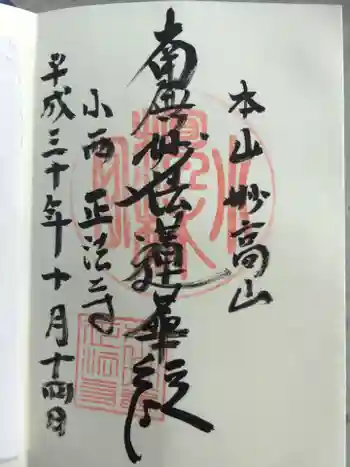 本山妙高山
南無妙法蓮華経
小西 正法寺
平成三十年十月十四日